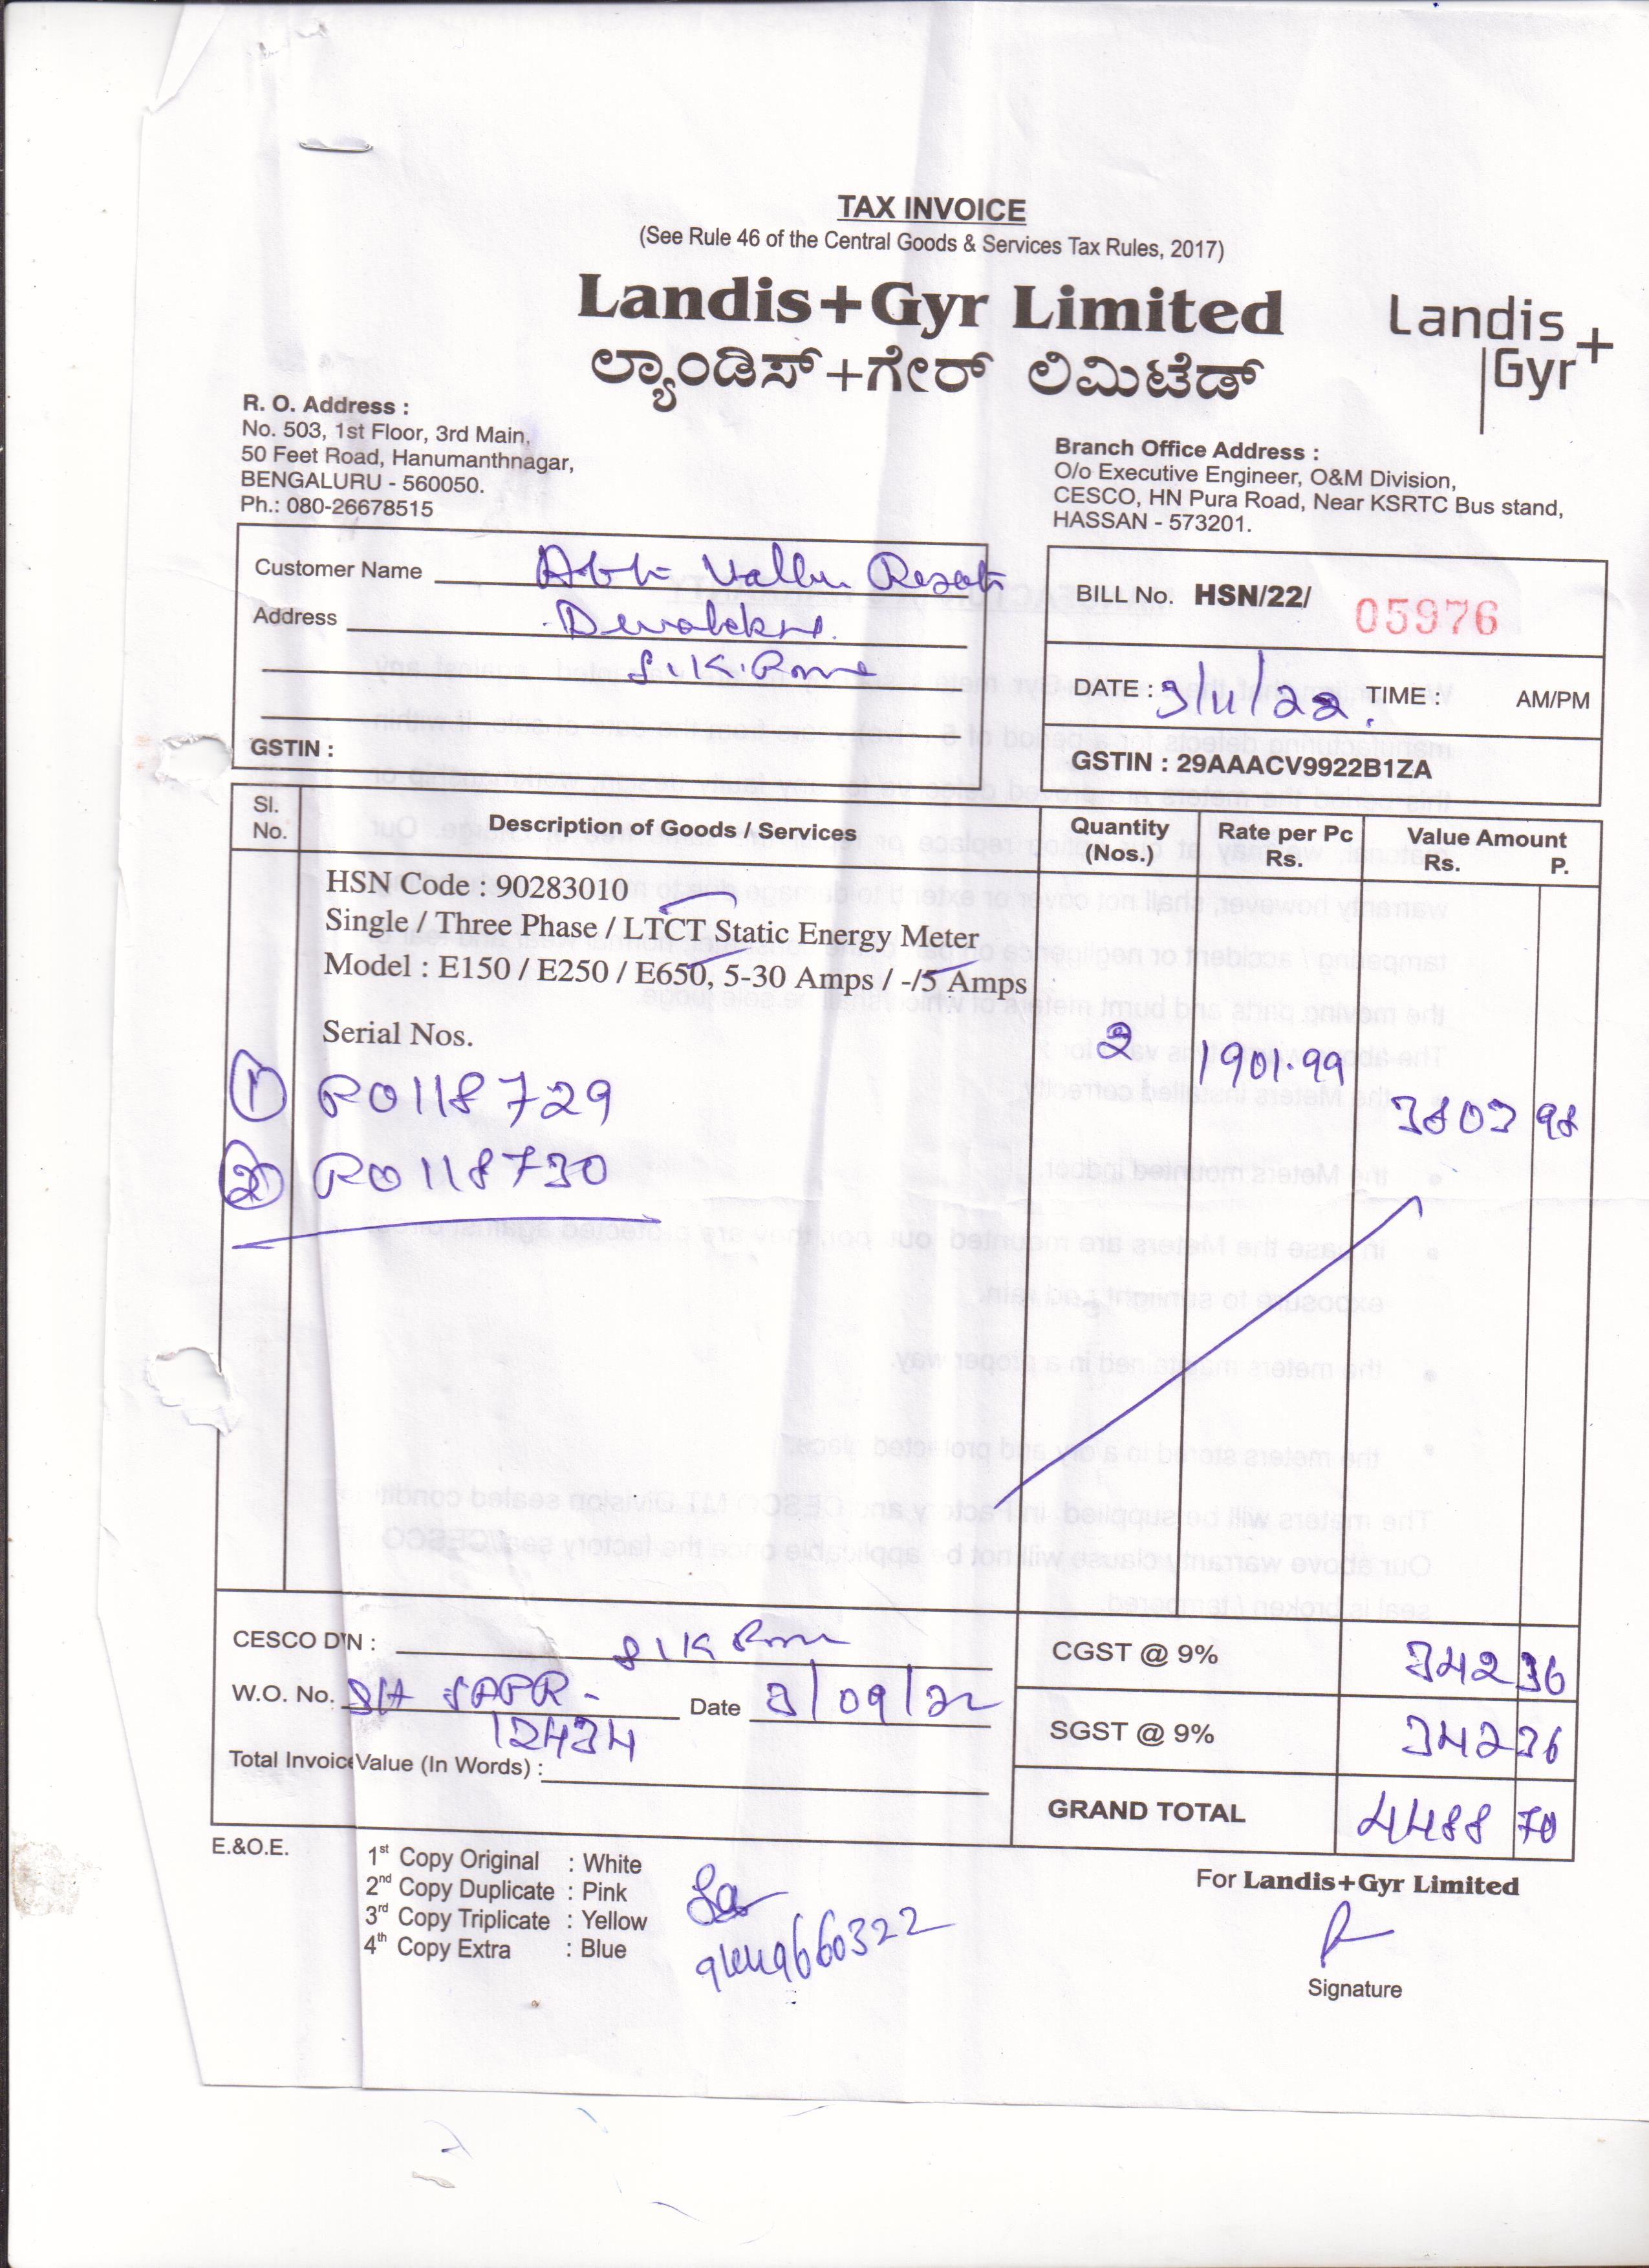 TAX INVOICE
(See Rule 46 of the Central Goods & Services Tax Rules, 2017)
Landis+Gyr Limited
ಲ್ಯಾಂಡಿಸ್+ಗೇರ್ ಲಿಮಿಟೆಡ್
Landis
Gyr+
R. O. Address :
No. 503, 1st Floor, 3rd Main,
50 Feet Road, Hanumanthnagar,
BENGALURU - 560050.
Ph.: 080-26678515
Branch Office Address :
O/o Executive Engineer, O&M Division,
CESCO, HN Pura Road, Near KSRTC Bus stand,
HASSAN - 573201.
Customer Name
Address
GSTIN :
BILL No. HSN/22/ 05976
DATE : 3/11/22 TIME : AM/PM
GSTIN : 29AAACV9922B1ZA
Sl. No. Description of Goods / Services Quantity (Nos.) Rate per Pc Rs. Value Amount Rs. P.
HSN Code : 90283010
Single / Three Phase / LTCT Static Energy Meter
Model : E150 / E250 / E650, 5-30 Amps / -/5 Amps
Serial Nos.
2 1901.99
3803 98
1 R0118729
2 R0118730
CESCO D'N :
W.O. No. 12434 Date 3/09/22
Total Invoice Value (In Words) :
CGST @ 9% 342 36
SGST @ 9% 342 36
GRAND TOTAL 4488 70
E.&O.E.
1st Copy Original : White
2nd Copy Duplicate : Pink
3rd Copy Triplicate : Yellow
4th Copy Extra : Blue
For Landis+Gyr Limited
Signature